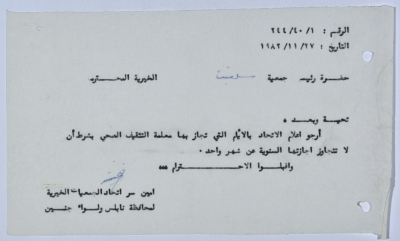 الرقم : ٢٤٤/٤٠/١
التاريخ : ١٩٨٢/١١/٢٧
حضرة رئيس جمعية الخيرية المحترم
تحية وبعد ،
أرجو اعلام الاتحاد بالأيام التي تجاز بها معلمة التثقيف الصحي بشرط أن
لا تتجاوز اجازتها السنوية عن شهر واحد .
واقبلوا الاحترام ،،،
امين سر اتحاد الجمعيات الخيرية
لمحافظة نابلس ولواء جنين